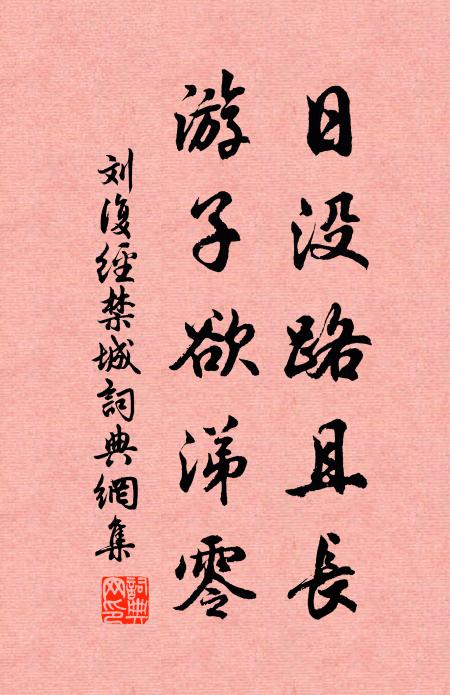 日没路且長
游子欲涕零
刘復經禁城詞典網集
詞典网印